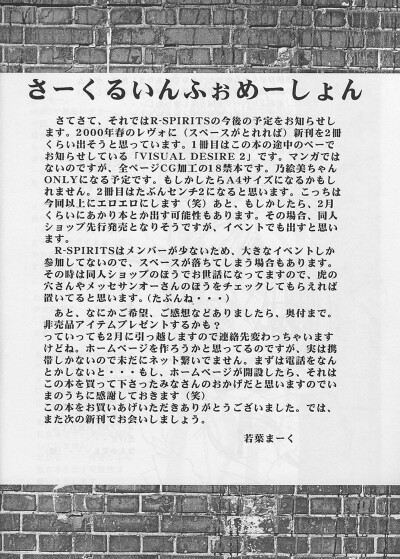 さーくるいんふぉめーしょん
さてさて、それではR-SPIRITSの今後の予定をお知らせし
ます。2000年春のレヴォに（スペースがとれれば）新刊を2冊
くらい出そうと思っています。1冊目はこの本の途中のペーで
お知らせしている「VISUAL DESIRE 2」です。マンガではな
いのですが、全ページCG加工の18禁本です。乃絵美ちゃん
ONLYになる予定です。もしかしたらA4サイズになるかもし
れません。2冊目はたぶんセンチ2になると思います。こっちは
今回以上にエロエロにします（笑）あと、もしかしたら、2月
くらいにあかり本とか出す可能性もあります。その場合、同人
ショップ先行発売となりそうですが、イベントでも出すと思い
ます。
R-SPIRITSはメンバーが少ないため、大きなイベントしか
参加してないので、スペースが落ちてしまう場合もあります。
その時は同人ショップのほうでお世話になってますので、虎の
穴さんやメッセサンオーさんのほうをチェックしてもらえれば
置いてると思います。（たぶんね・・・）
あと、なにかご希望、ご感想などありましたら、奥付まで。
非売品アイテムプレゼントするかも？
っていっても2月に引っ越しますので連絡先変わっちゃいます
けどね。ホームページを作ろうかと思ってるのですが、実は携
帯しかないので未だにネット繋いでません。まずは電話をなん
とかしないと・・・もし、ホームページが開設したら、それは
この本を買って下さったみなさんのおかげだと思いますのでい
まのうちに感謝しておきます（笑）
この本をお買いあげいただきありがとうございました。では、
また次の新刊でお会いしましょう。
若葉まーく